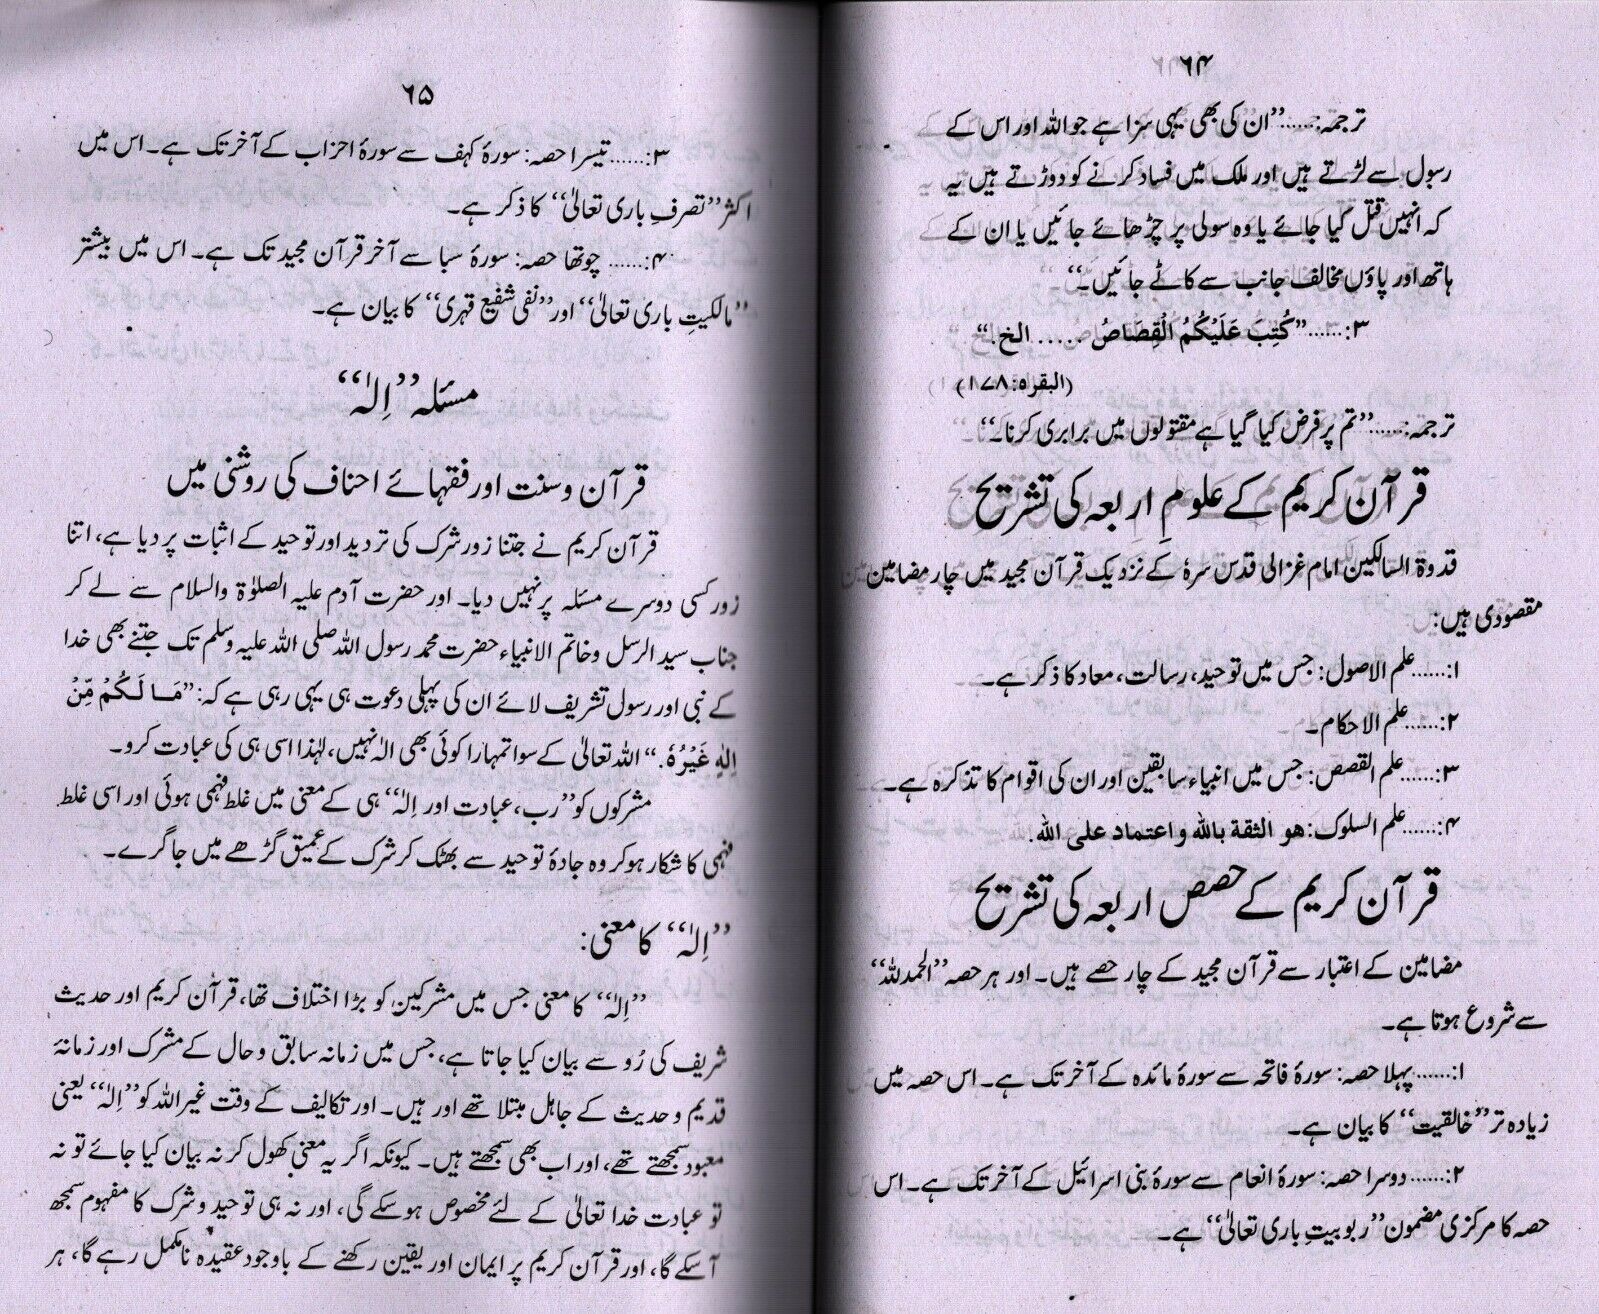 ۶۴
ترجمہ:......”ان کی بھی یہی سزا ہے جو اللہ اور اس کے
رسول سے لڑتے ہیں اور ملک میں فساد کرنے کو دوڑتے ہیں یہ
کہ انہیں قتل کیا جائے یا وہ سولی پر چڑھائے جائیں یا ان کے
ہاتھ اور پاؤں مخالف جانب سے کاٹے جائیں۔“
۳:......”كُتِبَ عَلَيْكُمُ الْقِصَاصُ ..... الخ.“
(البقرہ:۱۷۸)
ترجمہ:......”تم پر فرض کیا گیا ہے مقتولوں میں برابری کرنا۔“
قرآن کریم کے علومِ اربعہ کی تشریح
قدوۃ السالکین امام غزالی قدس سرہٗ کے نزدیک قرآن مجید میں چار مضامین
مقصودی ہیں:
۱:......علم الاصول: جس میں توحید، رسالت، معاد کا ذکر ہے۔
۲:......علم الاحکام۔
۳:......علم القصص: جس میں انبیاء سابقین اور ان کی اقوام کا تذکرہ ہے۔
۴:......علم السلوک: هو الثقة بالله واعتماد على الله.
قرآن کریم کے حصص اربعہ کی تشریح
مضامین کے اعتبار سے قرآن مجید کے چار حصے ہیں۔ اور ہر حصہ ”الحمدللہ“
سے شروع ہوتا ہے۔
۱:......پہلا حصہ: سورۂ فاتحہ سے سورۂ مائدہ کے آخر تک ہے۔ اس حصہ میں
زیادہ تر ”خالقیت“ کا بیان ہے۔
۲:......دوسرا حصہ: سورۂ انعام سے سورۂ بنی اسرائیل کے آخر تک ہے۔ اس
حصہ کا مرکزی مضمون ”ربوبیتِ باری تعالیٰ“ ہے۔
۶۵
۳:......تیسرا حصہ: سورۂ کہف سے سورۂ احزاب کے آخر تک ہے۔ اس میں
اکثر ”تصرفِ باری تعالیٰ“ کا ذکر ہے۔
۴:...... چوتھا حصہ: سورۂ سبا سے آخر قرآن مجید تک ہے۔ اس میں بیشتر
”مالکیتِ باری تعالیٰ“ اور ”نفی شفیع قہری“ کا بیان ہے۔
مسئلہ ”اِلٰہ“
قرآن وسنت اور فقہائے احناف کی روشنی میں
قرآن کریم نے جتنا زور شرک کی تردید اور توحید کے اثبات پر دیا ہے، اتنا
زور کسی دوسرے مسئلہ پر نہیں دیا۔ اور حضرت آدم علیہ الصلوٰۃ والسلام سے لے کر
جناب سید الرسل وخاتم الانبیاء حضرت محمد رسول اللہ صلی اللہ علیہ وسلم تک جتنے بھی خدا
کے نبی اور رسول تشریف لائے ان کی پہلی دعوت ہی یہی رہی ہے کہ: ”مَا لَكُمْ مِّنْ
اِلٰهٍ غَيْرُهٗ.“ اللہ تعالیٰ کے سوا تمہارا کوئی بھی الٰہ نہیں، لہٰذا اسی ہی کی عبادت کرو۔
مشرکوں کو ”رب، عبادت اور اِلٰہ“ ہی کے معنی میں غلط فہمی ہوئی اور اسی غلط
فہمی کا شکار ہوکر وہ جادۂ توحید سے بھٹک کر شرک کے عمیق گڑھے میں جا گرے۔
”اِلٰہ“ کا معنی:
”اِلٰہ“ کا معنی جس میں مشرکین کو بڑا اختلاف تھا، قرآن کریم اور حدیث
شریف کی رُو سے بیان کیا جاتا ہے، جس میں زمانہ سابق وحال کے مشرک اور زمانۂ
قدیم وحدیث کے جاہل مبتلا تھے اور ہیں۔ اور تکالیف کے وقت غیر اللہ کو ”اِلٰہ“ یعنی
معبود سمجھتے تھے، اور اب بھی سمجھتے ہیں۔ کیونکہ اگر یہ معنی کھول کر نہ بیان کیا جائے تو نہ
تو عبادت خدا تعالیٰ کے لئے مخصوص ہوسکے گی، اور نہ ہی توحید وشرک کا مفہوم سمجھ
آسکے گا، اور قرآن کریم پر ایمان اور یقین رکھنے کے باوجود عقیدہ نامکمل رہے گا، ہر